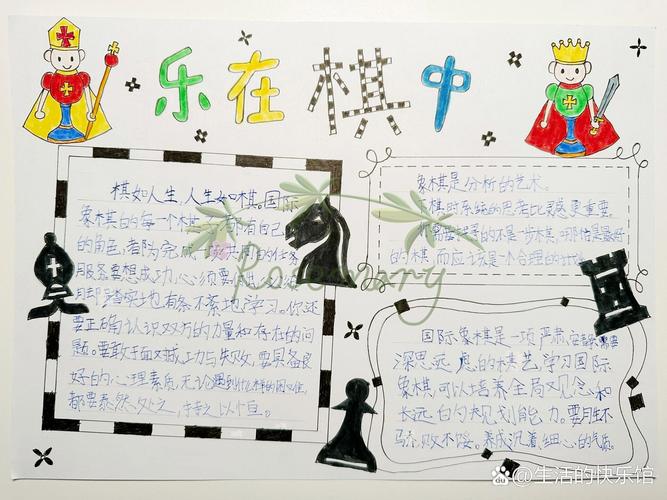 乐在棋中
棋如人生,人生如棋。国际
象棋的每一个棋 都有自己
的角色,者队完成 共同的任务
服务要想成功,心须要
脚踏实地有条不紊地学习。你还
要正确认识双方的力量和存在的问
题。要敢于面对成功与失败,要具备良
好的心理素质,无论遇到 样的困难
都要泰然处之,持之以恒。
象棋是分析的艺术。
棋时系统的思考比灵感更重要
你需要 的不是一步棋,哪怕是最好
的棋,而应该是一个合理的计
国际象棋是一项严肃,安静,需要
深思远虑的棋艺,学习国际
象棋,可以培养全局观念和
长远的规划能力。要胜不
骄,败不馁。养成沉着,细心的气质。
Rosemary
百家号@生活的快乐馆